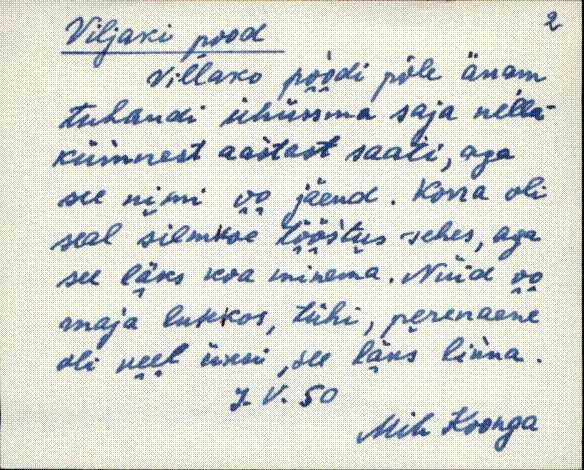 2
Viljari pood
Villako po̤o̤di põle änam
tuhandi ühüssma saja nellä-
kümnest aastast saati, aga
see nimi o̤o̤ jäend. Korra oli
seal silmkoe tö̤ö̤stus sehes, aga
see lä̤ks koa minema. Nüid o̤o̤
maja lukkos, tühi, perenaene
oli ve̤e̤l üksi, see lä̤ks linna.
J. V. 50
Mih Koonga